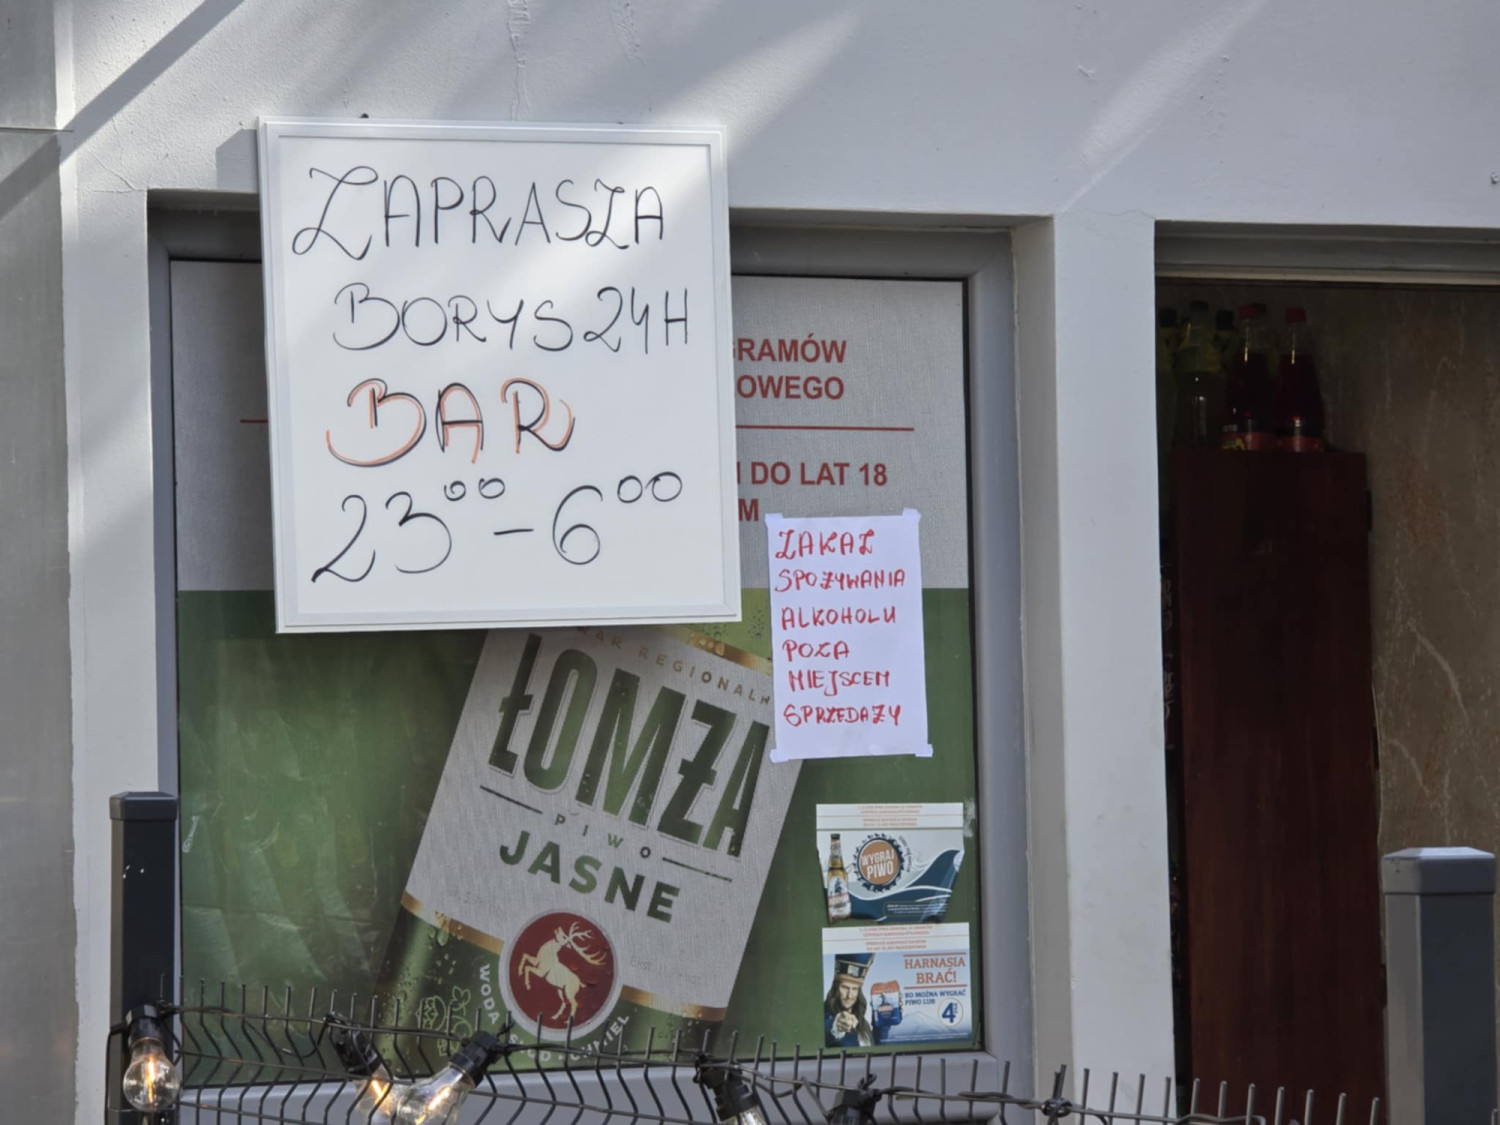 ZAPRASZA
BORYS 24H
BAR
23⁰⁰ – 6⁰⁰
GRAMÓW
OWEGO
DO LAT 18
M
ZAKAZ
SPOŻYWANIA
ALKOHOLU
POZA
MIEJSCEM
SPRZEDAŻY
REGIONALN
ŁOMŻA
PIWO
JASNE
WODA
WYGRAJ
PIWO
HARNASIA
BRAĆ!
BO MOŻNA WYGRAĆ
PIWO LUB
4